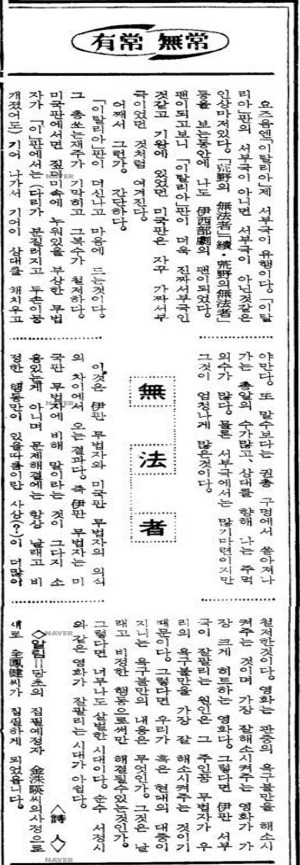 無常 有常
無法者
요즈음엔 「이탈리아」제 서부극이 유행이다. 「이탈
리아」판의 서부극이 아니면 서부극이 아닌것같은
인상마저있다. 「荒野의 無法者」「續·荒野의無法者」
등을 보는동안에 나도 伊西部劇의 팬이되었다.
팬이되고보니 「이탈리아」판이 더욱 진짜서부극인
것같고 기왕에 있었던 미국판은 자꾸 가짜서부
극이었던 것처럼 여겨진다.
어째서 그런가. 간단하다.
「이탈리아」판이 더신나고 마음에 드는것이다.
그 총쏘는재주가 기막히고 그복수가 철저하다.
미국판에서면 짚더미속에 누워있을 부상한 무법
자가 「이」판에서는 (다리가 분질러지고 두손이뭉
개졌어도) 기어 나가서 기어이 상대를 해치우고
야만다. 또 말수보다는 권총 구멍에서 쏟아져나
가는 총알의 수가많고, 상대를 향해 나는 주먹
의수가 많다. 물론 서부극에서는 많기마련이지만
그것이 엄청나게 많은것이다.
이것은 伊판 무법자와 미국판 무법자의 의식
의 차이에서 오는결과다. 즉伊판 무법자는 미
국판 무법자에 비해 말이라는 것이 그다지 소
용있는게 아니며 문제해결에는 항상 날래고 비
정한 행동만이 있을따름이란 사상(?)이 더많이
철저한것이다. 영화는 민중의 욕구불만을 해소시
켜주는 것이며 가장 잘해소시켜주는 영화가 가
장 크게 히트하는 영화다. 그렇다면 伊판 서부
극이 잘팔리는 원인은 그 주인공 무법자가 우
리의 욕구불만을 가장 잘 해소시켜주는 것이기
때문이다. 그렇다면 우리가 혹은 현대의 대중이
지니는 욕구불만의 내용은 무엇인가. 그것은 날
래고 비정한 행동으로써만 해결될수있는것인가.
그렇다면 너무나도 살벌한 시대이다. 순수 서정시
와 같은 영화가 잘팔리는 시대가 아쉽다.
〈詩人〉
◇알림=당초의 집필예정자 金洙暎씨의사정으로
새로 全鳳健씨가 집필하게 되었읍니다.
NAVER
NAVER
NAVER